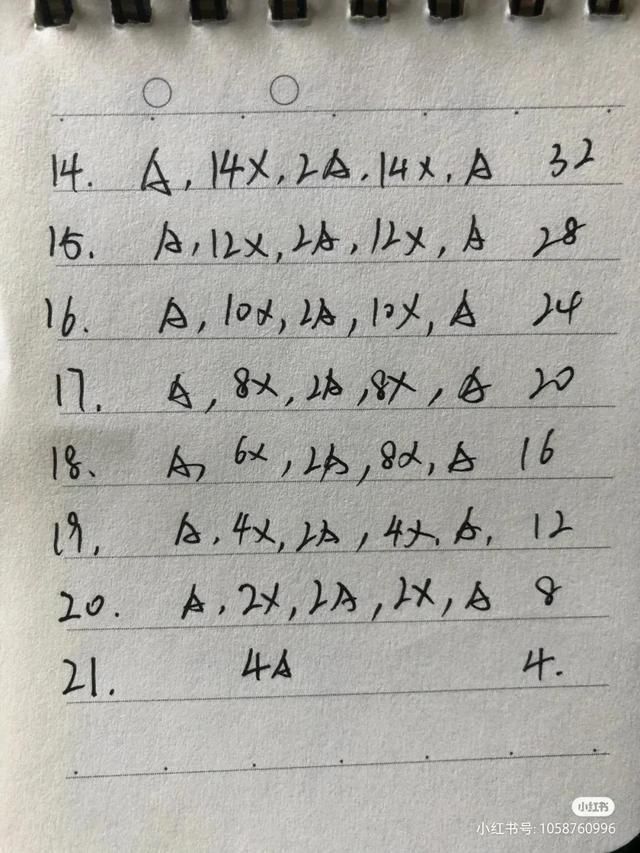 14. A, 14X, 2A, 14X, A 32
15. A, 12X, 2A, 12X, A 28
16. A, 10X, 2A, 10X, A 24
17. A, 8X, 2A, 8X, A 20
18. A, 6X, 2A, 8X, A 16
19. A, 4X, 2A, 4X, A, 12
20. A, 2X, 2A, 2X, A 8
21. 4A 4.
小红书
小红书号: 1058760996